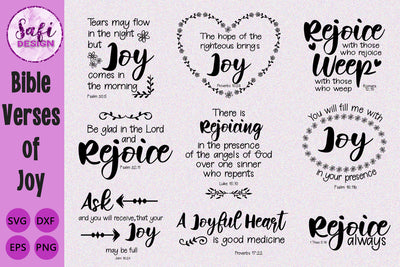 Safi
DESIGN
Bible
Verses
of
Joy
SVG DXF
EPS PNG
Tears may flow
in the night
but
Joy
comes in
the morning
Psalm 30:5
The hope of the
righteous brings
Joy
Proverbs 10:28
Rejoice
with those
who rejoice
Weep
with those
who weep
Romans 12:15
Be glad in the Lord
and
Rejoice
Psalm 32:11
There is
Rejoicing
in the presence
of the angels of God
over one sinner
who repents
Luke 15:10
You will fill me with
Joy
in your presence
Psalm 16:11b
Ask
and you will receive, that your
Joy
may be full
John 16:24
A Joyful Heart
is good medicine
Proverbs 17:22
Rejoice
1 Thess 5:16 always